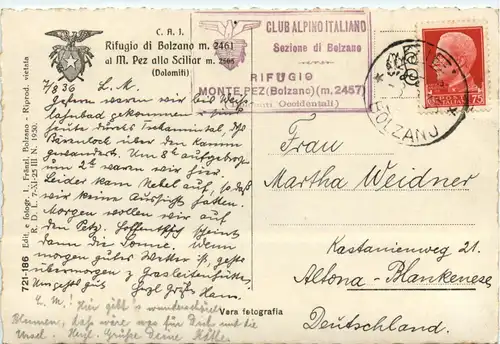 C. A. I.
Rifugio di Bolzano m. 2461
al M. Pez allo Sciliar m. 2565
(Dolomiti)
CLUB ALPINO ITALIANO
Sezione di Bolzano
RIFUGIO
MONTE PEZ (Bolzano) (m. 2457)
Occidentali)
BOLZANO
75
7/8 36 L. M.
Gestern waren wir bis Weiß-
lahnbad gekommen
heute durchs Tschamintal,
Bärenloch über den Kamm
gewandert. Um 8h aufgebro-
chen um 2h waren wir hier.
Leider kam Nebel auf, so daß
wir keine Aussicht hatten.
Morgen wollen wir auf
den Petz. Hoffentlich scheint
dann die Sonne. Wenn
morgen gutes Wetter ist, geht's
übermorgen z. Grasleitenhütte.
Herzl. Grüße Hans.
L. M.! Hier gibt's wunderschöne
Blumen, das wäre was für Dich und die
Ursel. Herzl. Grüße Deine Käthe
Frau
Martha Weidner
Kastanienweg 21.
Altona-Blankenese
Deutschland.
Vera fotografia
721-186 Edit. e fotogr. L. Fränzl, Bolzano - Riprod. vietata
R. D. L. 7-XI-25 III N. 1950.